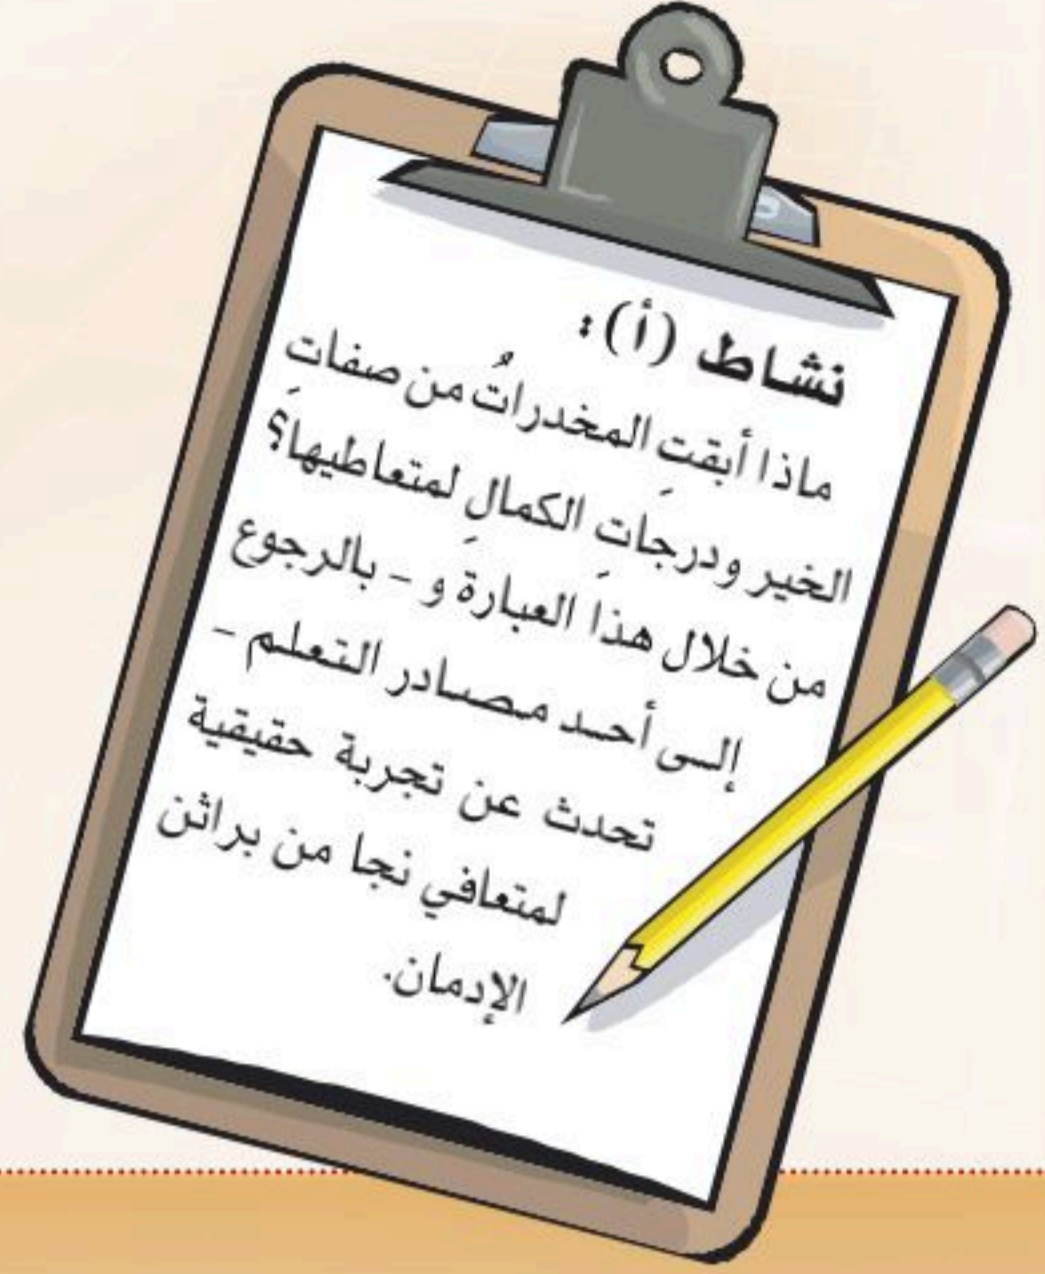 نشاط (أ):
ماذا أبقتِ المخدراتُ من صفاتِ
الخير ودرجاتِ الكمالِ لمتعاطيها؟
من خلال هذا العبارة و - بالرجوع
إلى أحد مصادر التعلم -
تحدث عن تجربة حقيقية
لمتعافي نجا من براثن
الإدمان.